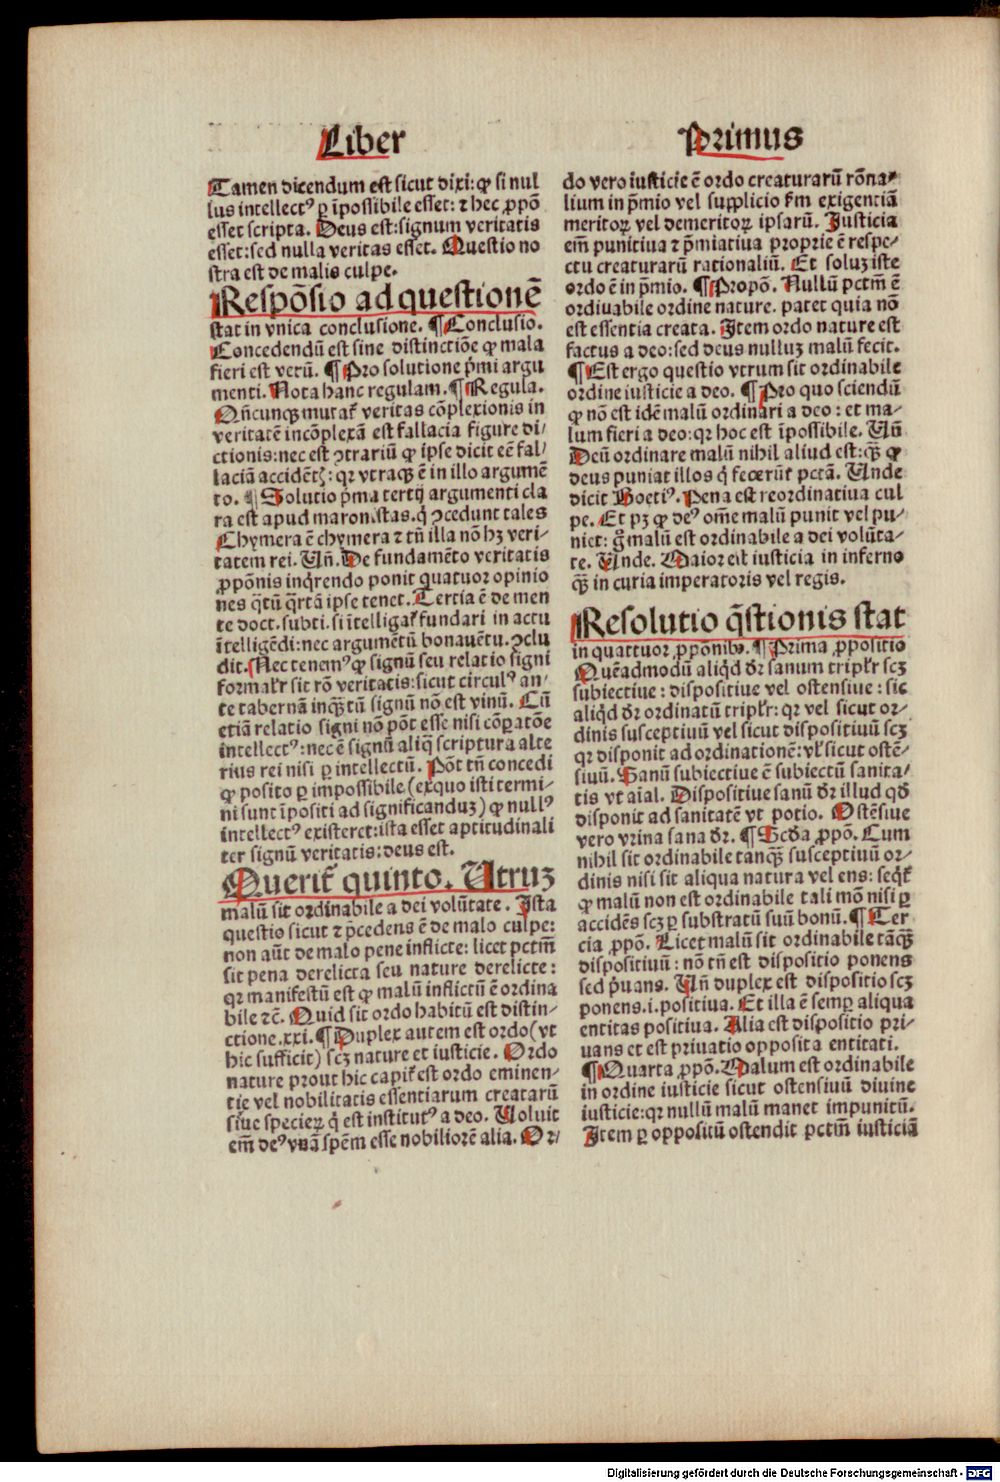 Liber Primus
Tamen dicendum est sicut dixi: ꝙ si nul
lus intellectꝰ ꝑ īpossibile esset: ⁊ hec ꝓpō
esset scripta. Deus est: signum veritatis
esset: sed nulla veritas esset. Questio no
stra est de malis culpe.
Respōsio ad questionē
stat in vnica conclusione. ¶ Conclusio.
Concedendū est sine distinctiōe ꝙ mala
fieri est verū. ¶ Pro solutione p̄mi argu
menti. Nota hanc regulam. ¶ Regula.
Qn̄cunqꝫ mutat᷑ veritas cōplexionis in
veritatē incōplexā est fallacia figure di⸗
ctionis: nec est ꝯtrariū ꝙ ipse dicit eē fal⸗
laciā accidētꝭ: qꝛ vtraqꝫ ē in illo argumē
to. ¶ Solutio p̄ma tertij argumenti cla
ra est apud maronistas. q̇ ꝯcedunt tales
Chymera ē chymera ⁊ tn̄ illa nō hꝫ veri⸗
tatem rei. Vn̄. De fundamēto veritatis
ꝓpōnis inq̇rendo ponit quatuor opinio
nes q̄tū q̄rtā ipse tenet. Tertia ē de men
te doct. subti. si ītelligat᷑ fundari in actu
ītelligēdi: nec argumētū bonauētu. ꝯclu
dit. Nec tenemꝰ ꝙ signū seu relatio signi
formal'r sit rō veritatis: sicut circulꝰ an⸗
te tabernā inqꝫtū signū nō est vinū. Cū
etiā relatio signi nō pōt esse nisi cōꝑatōe
intellectꝰ: nec ē signū aliq̄ scriptura alte
rius rei nisi ꝑ intellectū. Pōt tn̄ concedi
ꝙ posito ꝑ impossibile (exquo isti termi⸗
ni sunt īpositi ad significanduꝫ) ꝙ nullꝰ
intellectꝰ existeret: ista esset aptitudinali
ter signū veritatis: deus est.
Querit᷑ quinto. Utruꝫ
malū sit ordinabile a dei volūtate. Ista
questio sicut ⁊ p̄cedens ē de malo culpe:
non aūt de malo pene inflicte: licet pctm̄
sit pena derelicta seu nature derelicte:
qꝛ manifestū est ꝙ malū inflictū ē ordina
bile ⁊c̄. Quid sit ordo habitū est distin⸗
ctione .xxi. ¶ Duplex autem est ordo (vt
hic sufficit) scꝫ nature et iusticie. Ordo
nature prout hic capit᷑ est ordo eminen⸗
tie vel nobilitatis essentiarum creatarū
siue specieꝝ q̇ est institutꝰ a deo. Voluit
em̄ deꝰ vnā spēm esse nobiliorē alia. Or⸗
do vero iusticie ē ordo creaturarū rōna⸗
lium in p̄mio vel supplicio ẜm exigentiā
meritoꝝ vel demeritoꝝ ipsarū. Iusticia
em̄ punitiua ⁊ p̄miatiua proprie ē respe⸗
ctu creaturarū rationaliū. Et soluꝫ iste
ordo ē in p̄mio. ¶ Propō. Nullū pctm̄ ē
ordiuabile ordine nature. patet quia nō
est essentia creata. Item ordo nature est
factus a deo: sed deus nulluꝫ malū fecit.
¶ Est ergo questio vtrum sit ordinabile
ordine iusticie a deo. ¶ Pro quo sciendū
ꝙ nō est idē malū ordinari a deo: et ma⸗
lum fieri a deo: qꝛ hoc est īpossibile. Vn̄
Deū ordinare malū nihil aliud est: qꝫ̄ ꝙ
deus puniat illos q̇ fecerūt pctā. Unde
dicit Boetiꝰ. Pena est reordinatiua cul
pe. Et pꝫ ꝙ deꝰ om̄e malū punit vel pu⸗
niet: g̊ malū est ordinabile a dei volūta⸗
te. Unde. Maior est iusticia in inferno
qꝫ̄ in curia imperatoris vel regis.
Resolutio q̄stionis stat
in quattuor ꝓpōnibꝰ. ¶ Prima ꝓpositio
Quēadmodū aliq̇d d̄r sanum tripl'r scꝫ
subiectiue: dispositiue vel ostensiue: sic
aliq̇d d̄r ordinatū tripl'r: qꝛ vel sicut or⸗
dinis susceptiuū vel sicut dispositiuū scꝫ
qꝛ disponit ad ordinationē: vl' sicut ostē⸗
siuū. Sanū subiectiue ē subiectū sanita⸗
tis vt aīal. Dispositiue sanū d̄r illud qd̄
disponit ad sanitatē vt potio. Ostēsiue
vero vrina sana d̄r. ¶ Scd̄a ꝓpō. Cum
nihil sit ordinabile tanqꝫ̄ susceptiuū or⸗
dinis nisi sit aliqua natura vel ens: seq̇t᷑
ꝙ malū non est ordinabile tali mō nisi ꝑ
accidēs scꝫ ꝑ substratū suū bonū. ¶ Ter
cia ꝓpō. Licet malū sit ordinabile tāqꝫ̄
dispositiuū: nō tn̄ est dispositio ponens
sed p̄uans. Vn̄ duplex est dispositio scꝫ
ponens .i. positiua. Et illa ē semꝑ aliqua
entitas positiua. Alia est dispositio pri⸗
uans et est priuatio opposita entitati.
¶ Quarta ꝓpō. Malum est ordinabile
in ordine iusticie sicut ostensiuū diuine
iusticie: qꝛ nullū malū manet impunitū.
Item ꝑ oppositū ostendit pctm̄ iusticiā
Digitalisierung gefördert durch die Deutsche Forschungsgemeinschaft - DFG